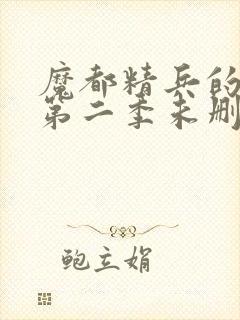 魔都精兵的
第二季未删
鲍立娟